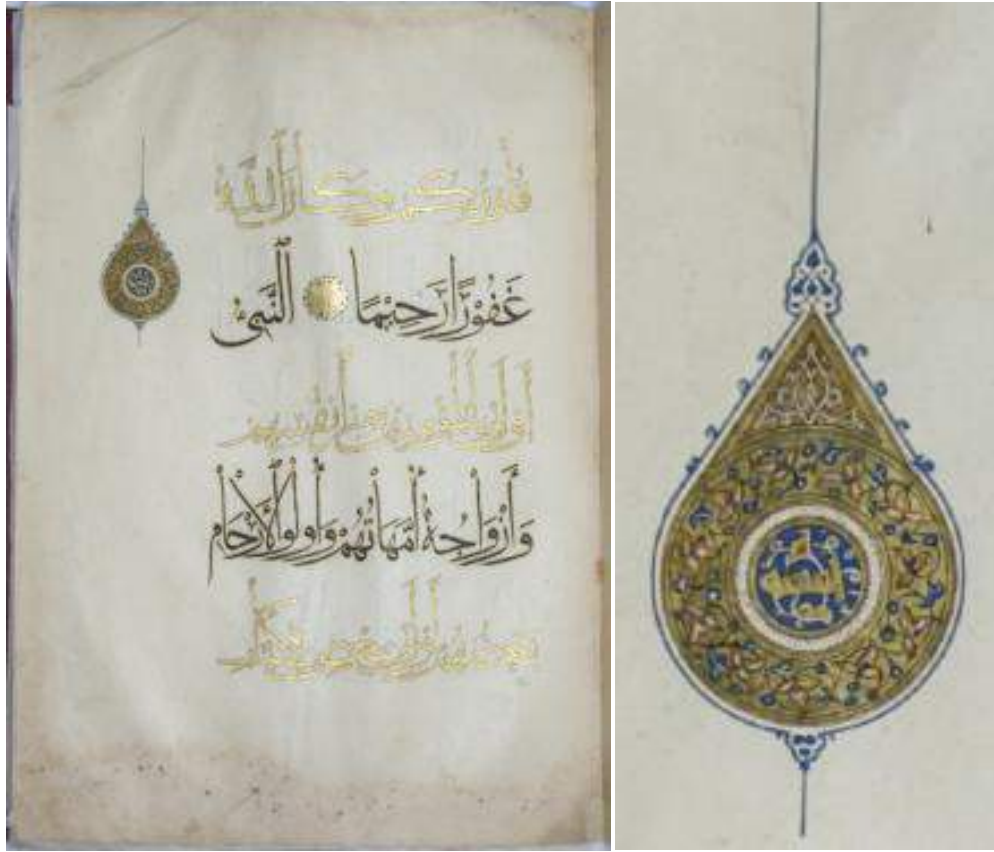 قلوبكم وكان الله
غَفُوْرًا رَحِيْمًا اَلنَّبِيُّ
أولى بالمؤمنين من أنفسهم
وَأَزْوَاجُهُ أُمَّهَاتُهُمْ وَأُولُوا الْأَرْحَامِ
بعضهم أولى ببعض في كتاب